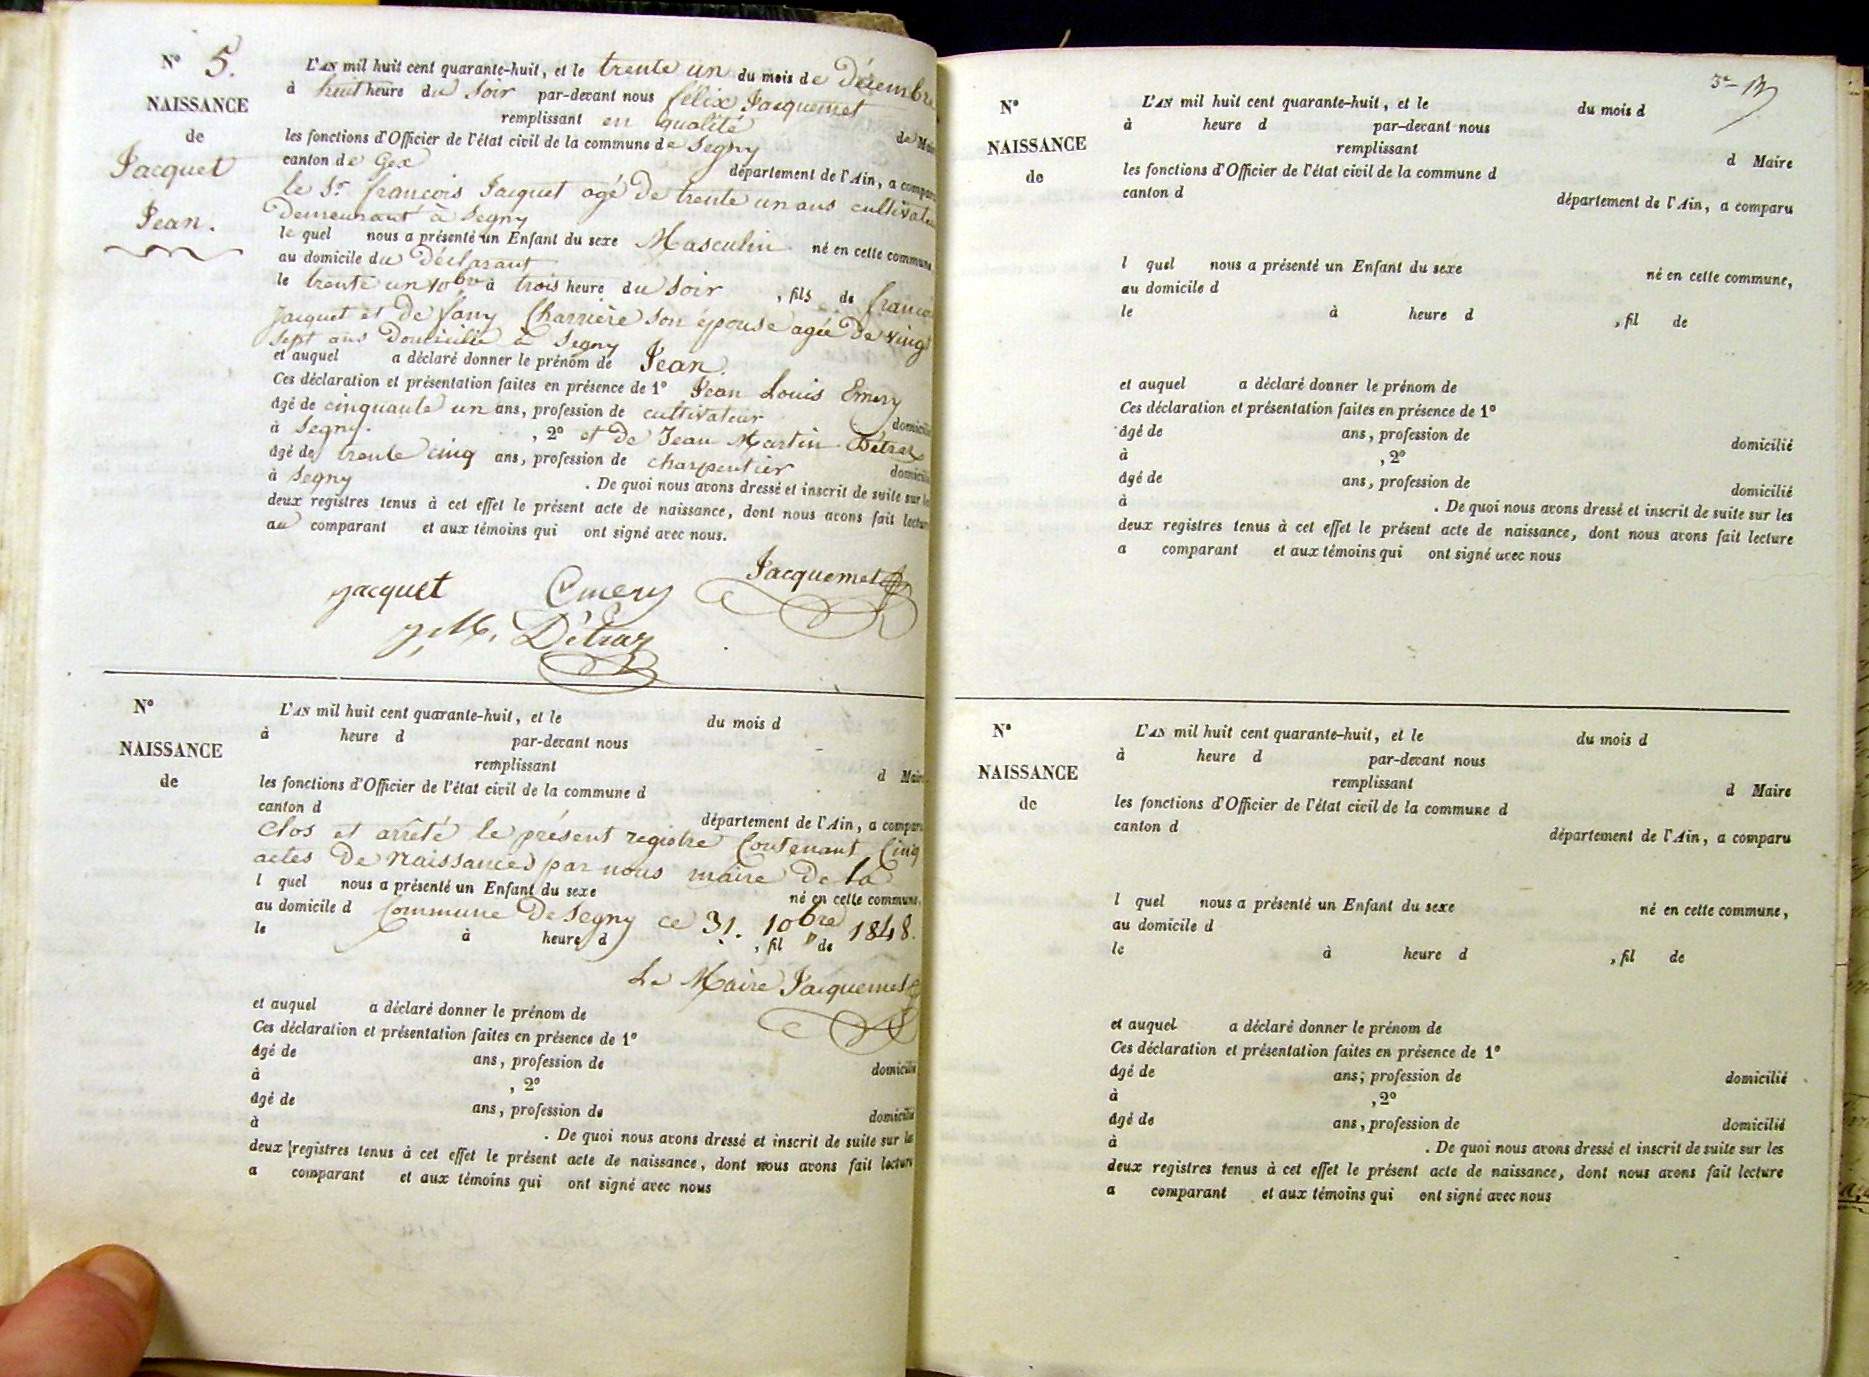 N° 5.
NAISSANCE
de
Jacquet
Jean.
L'AN mil huit cent quarante-huit, et le trente un du mois de Décembre
à huit heure du soir par-devant nous félix Jacquemet
remplissant en qualité de Maire
les fonctions d'Officier de l'état civil de la commune de Segny
canton de Gex département de l'Ain, a comparu
le Sr françois Jacquet agé de trente un ans cultivateur
Demeurant à Segny
le quel nous a présenté un Enfant du sexe Masculin né en cette commune,
au domicile du Déclarant
le trente un 10bre à trois heure du soir , fils de françois
Jacquet et de fany Charrière son épouse agée De vingt
sept ans Domicilié à Segny
et auquel a déclaré donner le prénom de Jean.
Ces déclaration et présentation faites en présence de 1° Jean Louis Emery
âgé de cinquante un ans, profession de cultivateur domicilié
à Segny. , 2° et de Jean Martin Détraz
âgé de trente cinq ans, profession de charpentier domicilié
à Segny . De quoi nous avons dressé et inscrit de suite sur les
deux registres tenus à cet effet le présent acte de naissance, dont nous avons fait lecture
au comparant et aux témoins qui ont signé avec nous.
Jacquemet
jacquet Emery
J. M. Détraz
N°
NAISSANCE
de
L'AN mil huit cent quarante-huit, et le du mois d
à heure d par-devant nous
remplissant d Maire
les fonctions d'Officier de l'état civil de la commune d
canton d département de l'Ain, a comparu
Clos et arrêté le présent registre Contenant Cinq
actes De Naissances par nous maire De la
l quel nous a présenté un Enfant du sexe né en cette commune,
au domicile d Commune De Segny ce 31. 10bre 1848.
le à heure d , fil de
Le Maire Jacquemet
et auquel a déclaré donner le prénom de
Ces déclaration et présentation faites en présence de 1°
âgé de ans, profession de domicilié
à , 2°
âgé de ans, profession de domicilié
à . De quoi nous avons dressé et inscrit de suite sur les
deux registres tenus à cet effet le présent acte de naissance, dont nous avons fait lecture
a comparant et aux témoins qui ont signé avec nous
N°
NAISSANCE
de
L'AN mil huit cent quarante-huit, et le du mois d
à heure d par-devant nous
remplissant d Maire
les fonctions d'Officier de l'état civil de la commune d
canton d département de l'Ain, a comparu
l quel nous a présenté un Enfant du sexe né en cette commune,
au domicile d
le à heure d , fil de
et auquel a déclaré donner le prénom de
Ces déclaration et présentation faites en présence de 1°
âgé de ans, profession de domicilié
à , 2°
âgé de ans, profession de domicilié
à . De quoi nous avons dressé et inscrit de suite sur les
deux registres tenus à cet effet le présent acte de naissance, dont nous avons fait lecture
a comparant et aux témoins qui ont signé avec nous
N°
NAISSANCE
de
L'AN mil huit cent quarante-huit, et le du mois d
à heure d par-devant nous
remplissant d Maire
les fonctions d'Officier de l'état civil de la commune d
canton d département de l'Ain, a comparu
l quel nous a présenté un Enfant du sexe né en cette commune,
au domicile d
le à heure d , fil de
et auquel a déclaré donner le prénom de
Ces déclaration et présentation faites en présence de 1°
âgé de ans; profession de domicilié
à , 2°
âgé de ans, profession de domicilié
à . De quoi nous avons dressé et inscrit de suite sur les
deux registres tenus à cet effet le présent acte de naissance, dont nous avons fait lecture
a comparant et aux témoins qui ont signé avec nous